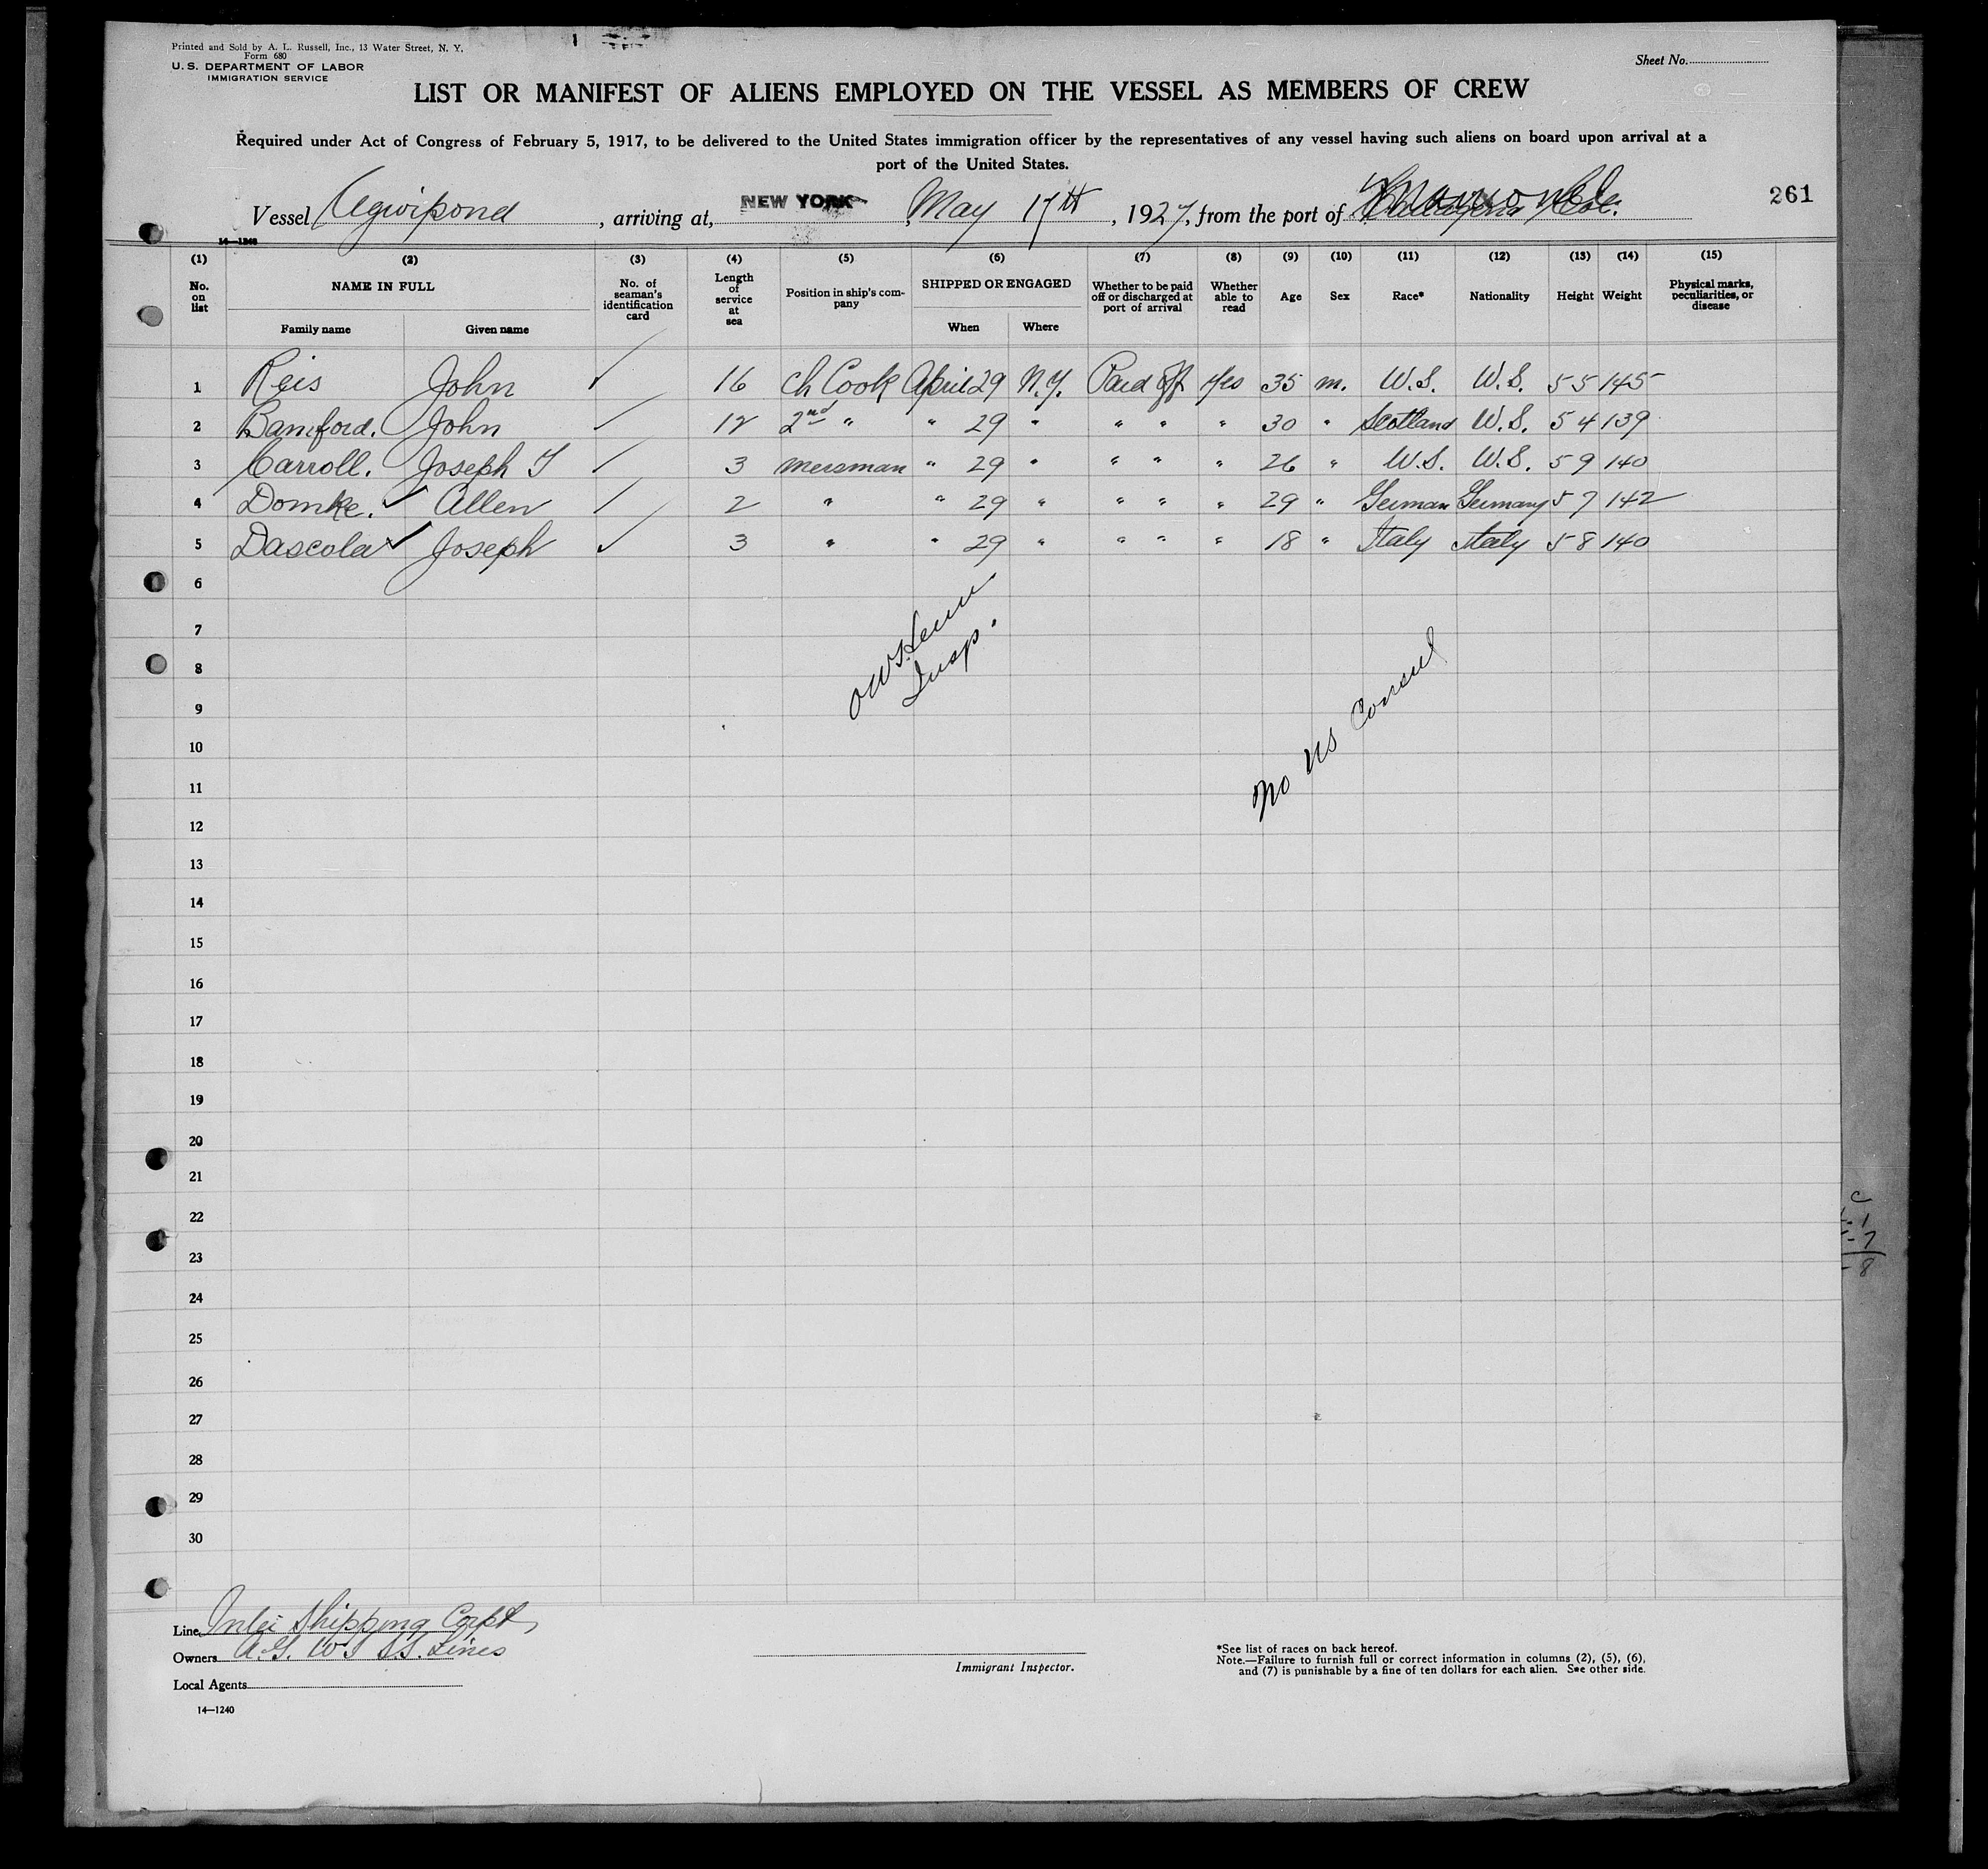 Printed and Sold by A. L. Russell, Inc., 13 Water Street, N. Y.
Form 680
U. S. DEPARTMENT OF LABOR
IMMIGRATION SERVICE
Sheet No.
LIST OR MANIFEST OF ALIENS EMPLOYED ON THE VESSEL AS MEMBERS OF CREW
Required under Act of Congress of February 5, 1917, to be delivered to the United States immigration officer by the representatives of any vessel having such aliens on board upon arrival at a
port of the United States.
Vessel Agwipond, arriving at, NEW YORK, May 17th, 1927, from the port of
261
14—1240
(1) (2) (3) (4) (5) (6) (7) (8) (9) (10) (11) (12) (13) (14) (15)
No. on list
NAME IN FULL
Family name
Given name
No. of seaman's identification card
Length of service at sea
Position in ship's company
SHIPPED OR ENGAGED
When
Where
Whether to be paid off or discharged at port of arrival
Whether able to read
Age
Sex
Race*
Nationality
Height
Weight
Physical marks, peculiarities, or disease
1 Reis John ✓ 16 Ch Cook April 29 N.Y. Paid off Yes 35 m. U.S. U.S. 5 5 145
2 Bamford. John ✓ 12 2nd " " 29 " " " " 30 " Scotland U.S. 5 4 139
3 Carroll. Joseph T ✓ 3 messman " 29 " " " " 26 " U.S. U.S. 5 9 140
4 Domke. ✓ Allen ✓ 2 " " 29 " " " " 29 " German Germany 5 7 142
5 Dascola ✓ Joseph ✓ 3 " " 29 " " " " 18 " Italy Italy 5 8 140
6
7
8
9
10
11
12
13
14
15
16
17
18
19
20
21
22
23
24
25
26
27
28
29
30
Insp.
No US Consul
Line Inter Shipping Corpt
Owners A.G. W I S.S. Lines
Local Agents
14—1240
Immigrant Inspector.
*See list of races on back hereof.
Note.—Failure to furnish full or correct information in columns (2), (5), (6),
and (7) is punishable by a fine of ten dollars for each alien. See other side.